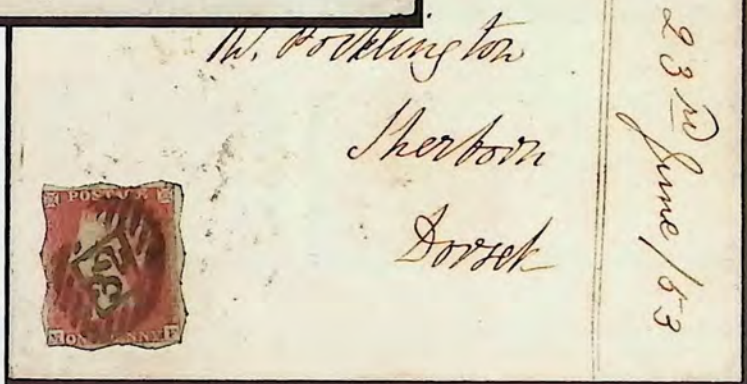 Pocklington
Sherborn
Dorset
23rd June/53
POSTAGE
ONE PENNY